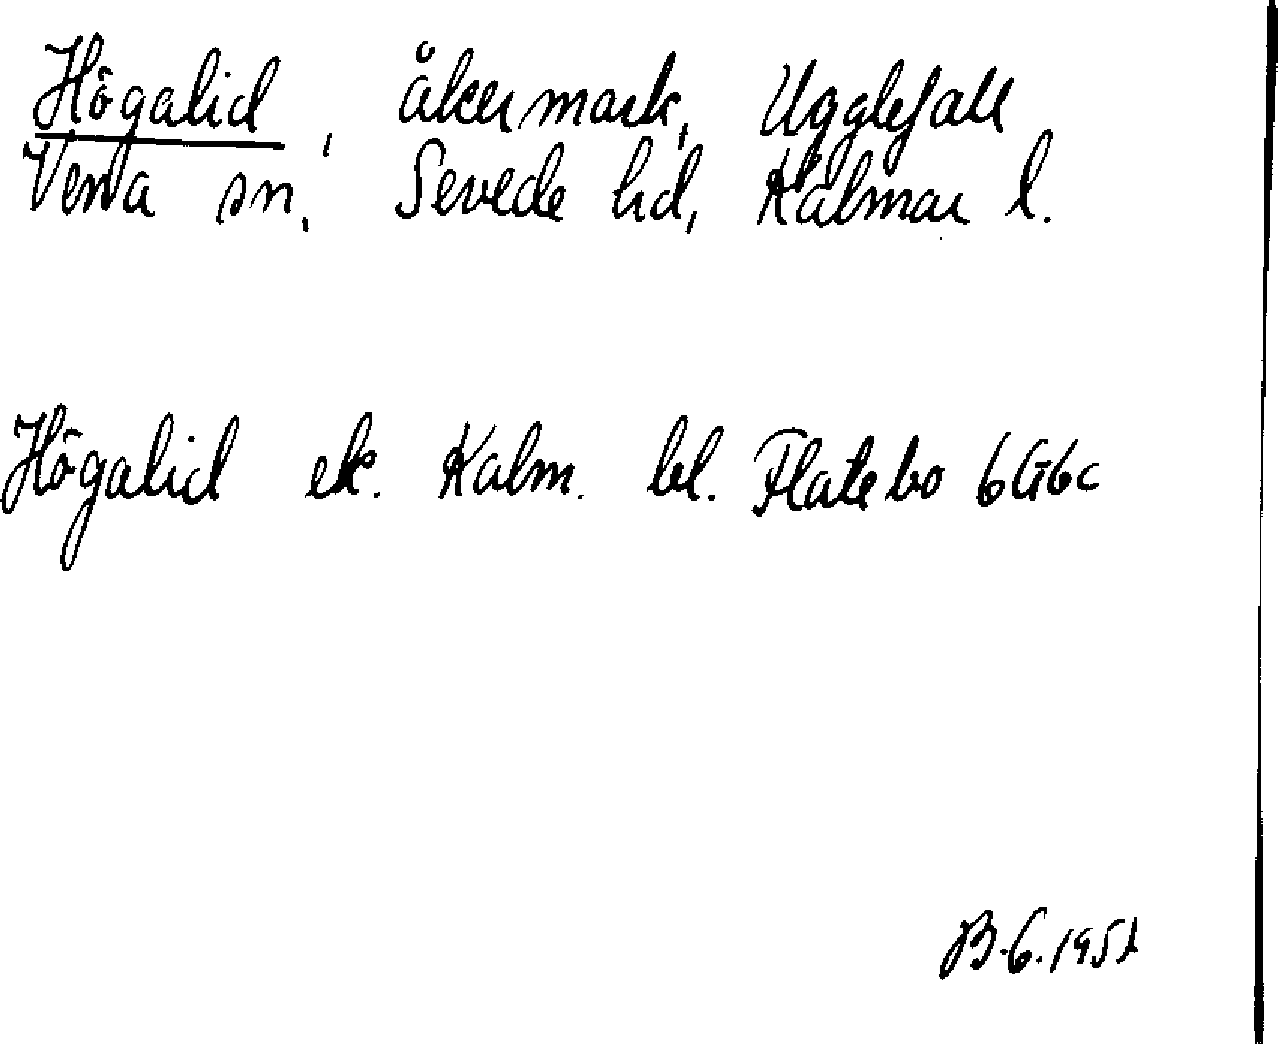 Högalid, åkermark, Ugglefall
Vena sn, Sevede hd, Kalmar l.
Högalid ek. Kalm. bl. Flatebo 6G6c
B.G. 1951